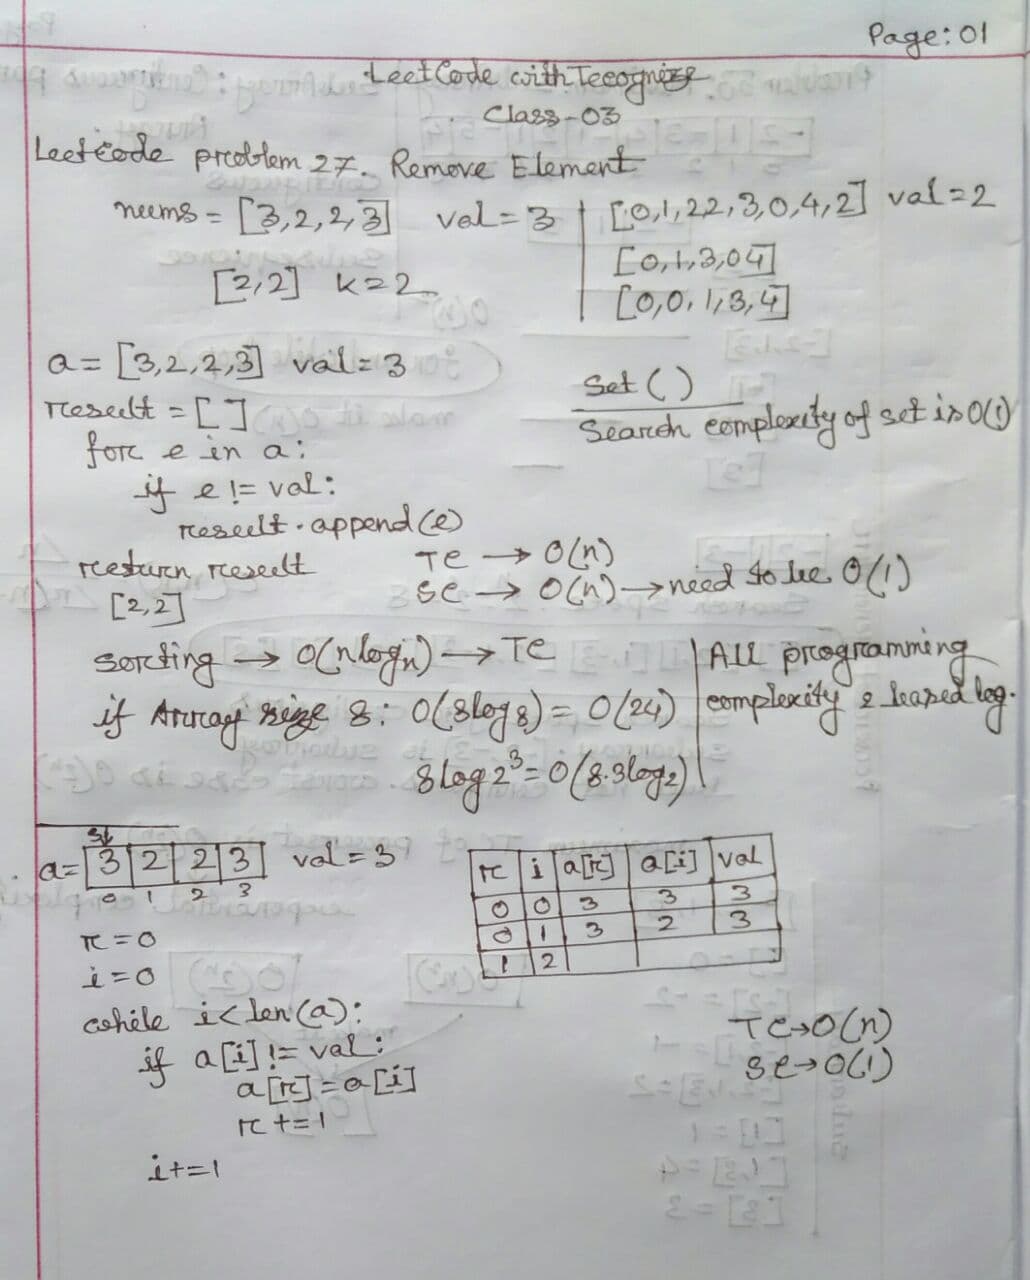 Page: 01
LeetCode with Tecognize
Class-03
Leetcode problem 27. Remove Element
nums = [3,2,2,3] val = 3
[2,2] k=2
[0,1,22,3,0,4,2] val=2
[0,1,3,04]
[0,0,1,3,4]
a = [3,2,2,3] val = 3
result = [ ]
for e in a:
if e != val:
result.append(e)
return result
[2,2]
Set ()
Search complexity of set is O(1)
TC → O(n)
SC → O(n) → need to be O(1)
sorting → O(nlogn) → TC
if Array size 8: O(8log8) = O(24)
8log2³ = O(8.3log2)
All programming
complexity 2 based log.
a= 3 2 2 3 val = 3
0 1 2 3
r = 0
i = 0
while i < len(a):
if a[i] != val:
a[r] = a[i]
r += 1
i += 1
r i a[r] a[i] val
0 0 3 3 3
0 1 3 2 3
1 2
TC→O(n)
SC→O(1)